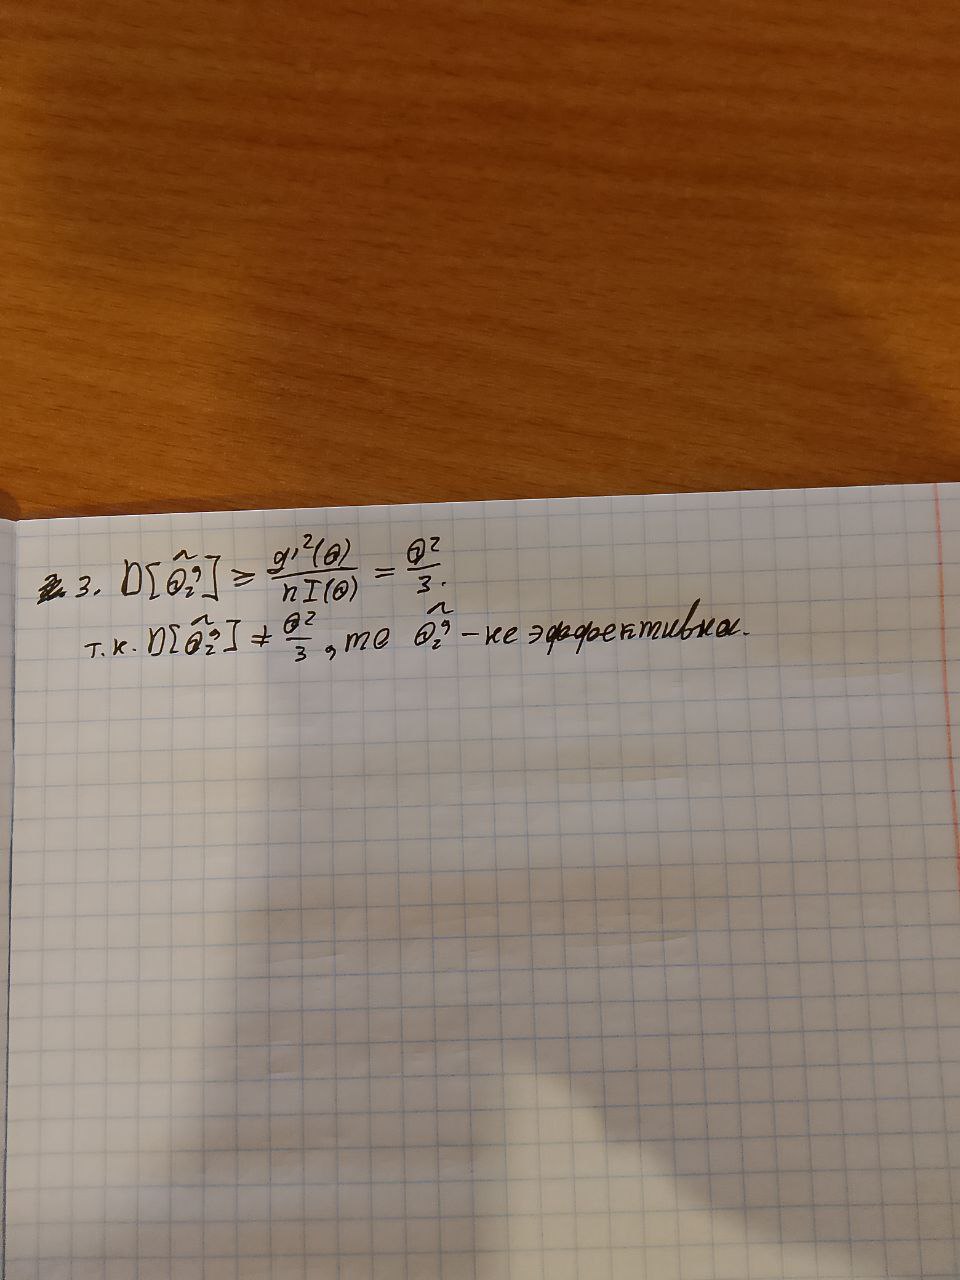 3. D[θ̂₂'] ⩾ g'²(θ)/(n I(θ)) = θ²/3.
т.к. D[θ̂₂'] ≠ θ²/3, то θ̂₂' – не эффективна.